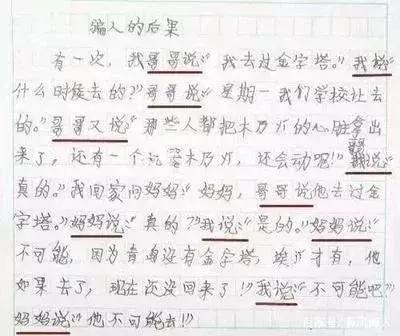 骗人的后果
有一次，我哥哥说：“我去过金字塔。”我说：“
什么时候去的？”哥哥说：“星期一我们学校让去
的。”哥哥又说：“那些人都把木乃伊的心脏拿出
来了，还有一个木乃伊，还会动呢！”我说：“
真的。”我回家问妈妈：“妈妈，哥哥说他去过金
字塔。”妈妈说：“真的？”我说：“是的。”妈妈说：“
不可能，因为青岛没有金字塔，埃及才有，他
如果去了，现在还没回来了！”我说：“不可能吧？”
妈妈说：“他不可能去！”